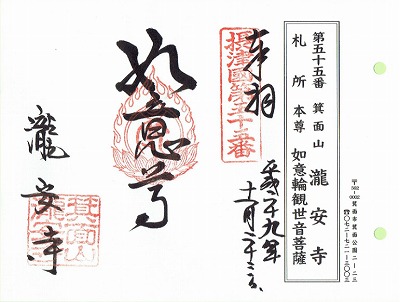 第五十五番 箕面山 瀧安寺
札所本尊 如意輪観世音菩薩
〒562-0002 箕面市箕面公園二-二三
☎〇七二-七二一-三〇〇三
摂津國第五十五番
奉拝
平成十九年
十二月二十三日
如意尊
瀧安寺
箕面山